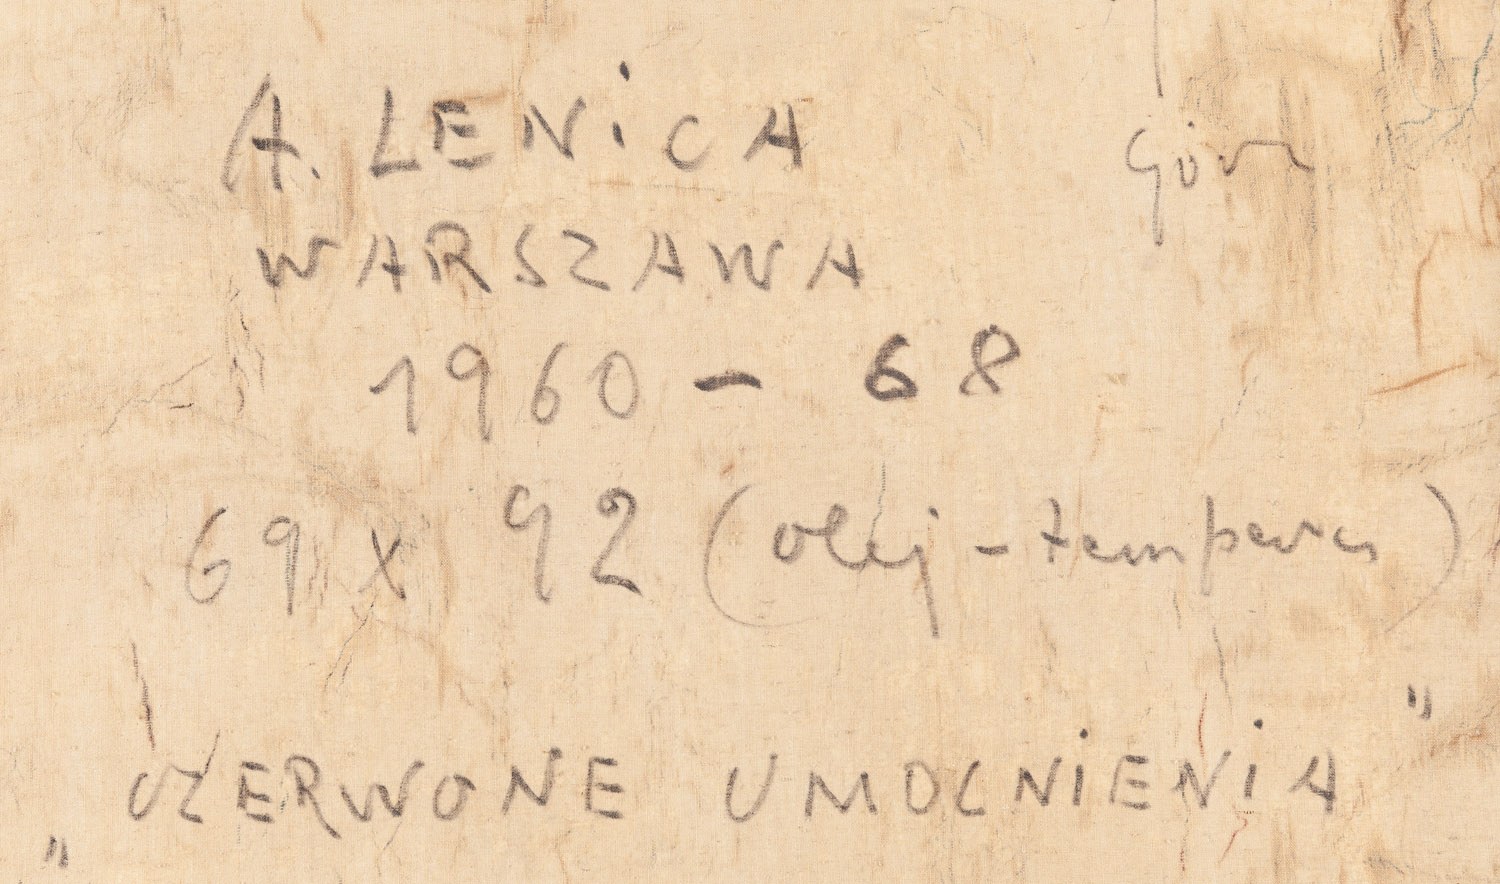 A. LENiCA
góra
WARSZAWA
1960 - 68
69 x 92 (olej - tempera)
„CZERWONE UMOCNiENiA"